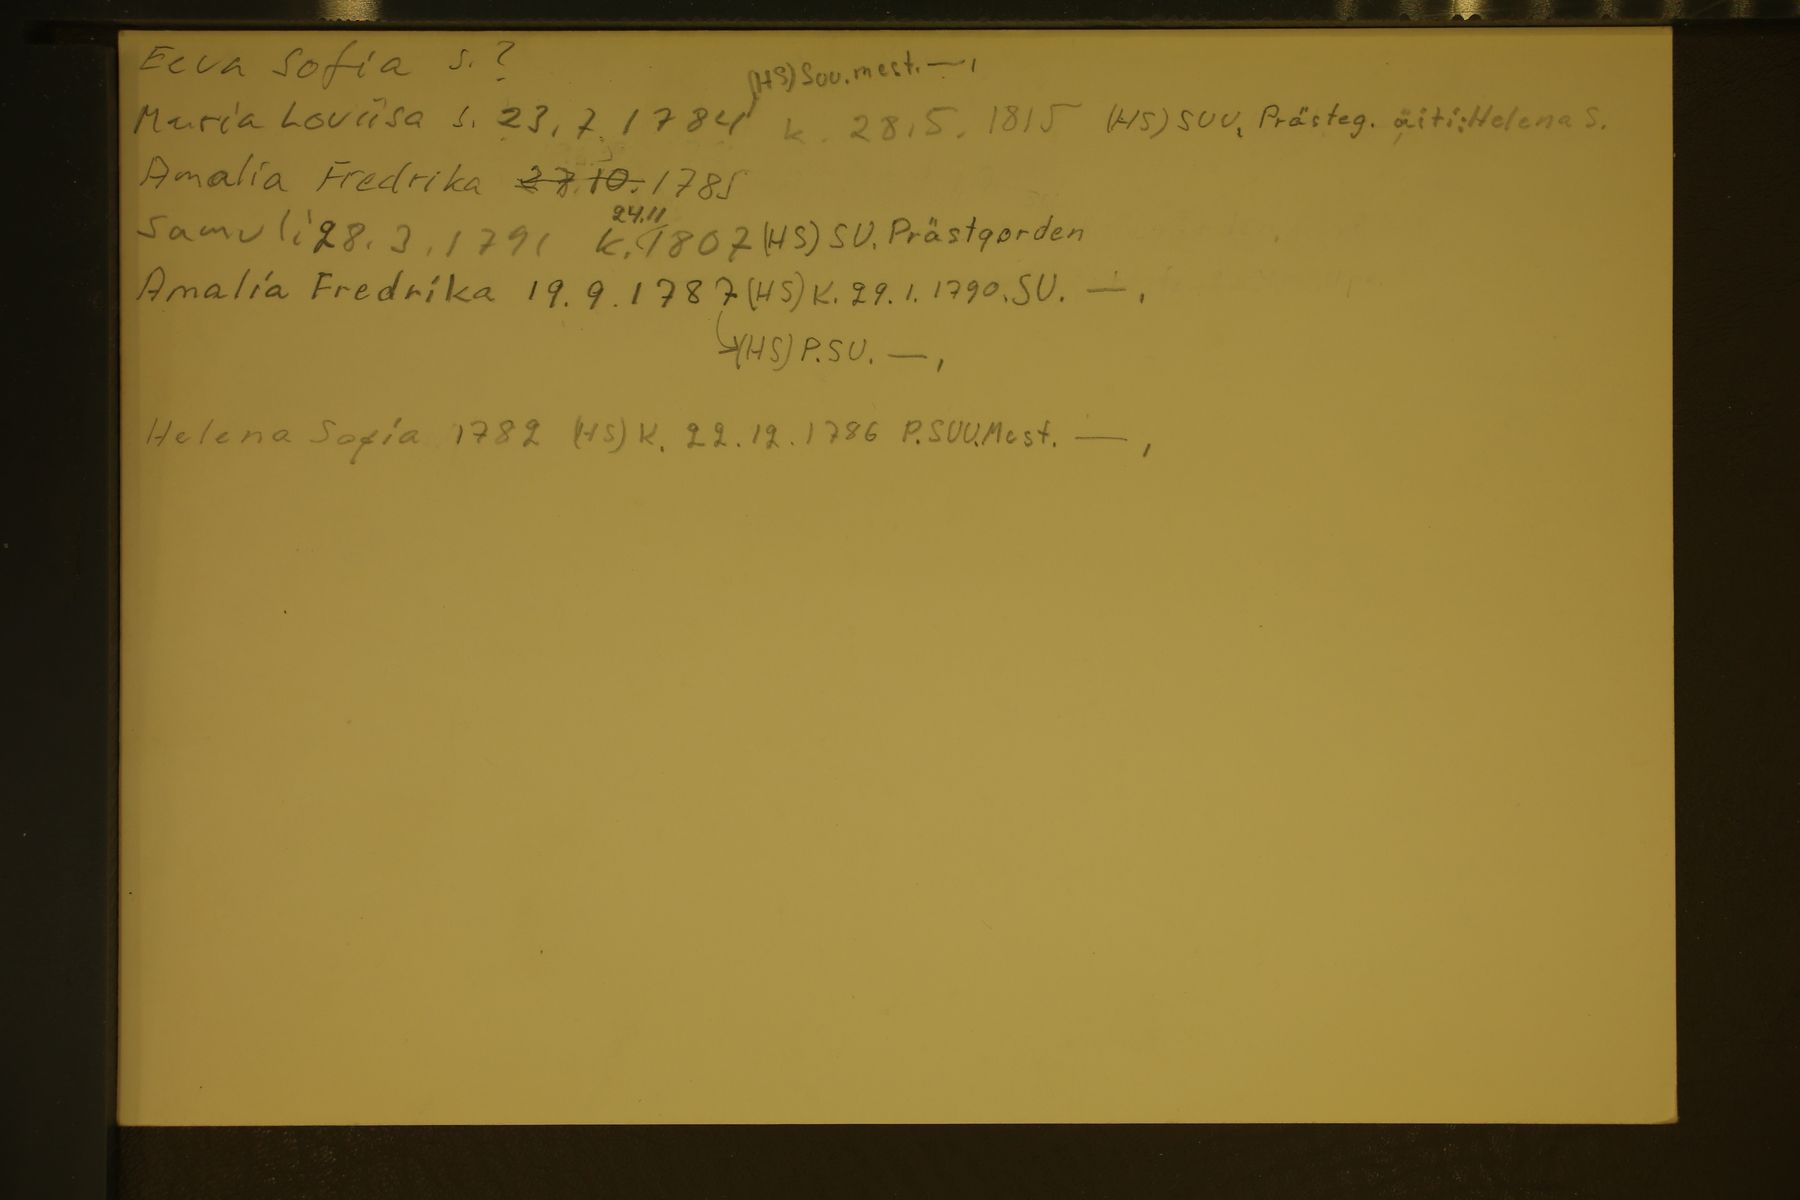 Eeva Sofia s. ?
(HS) Suu. mest. —,
Maria Loviisa s. 23.7.1784 k. 28.5.1815 (HS) SUU, Prästeg. äiti: Helena S.
Amalia Fredrika 27.10.1785
24.11
Samuli 28.3.1791 k. 1807 (HS) SU. Prästgorden
Amalia Fredrika 19.9.1787 (HS) K. 29.1.1790. SU. —,
(HS) P.SU. —,
Helena Sofia 1782 (HS) K. 22.12.1786 P.SUU.Mest. —,